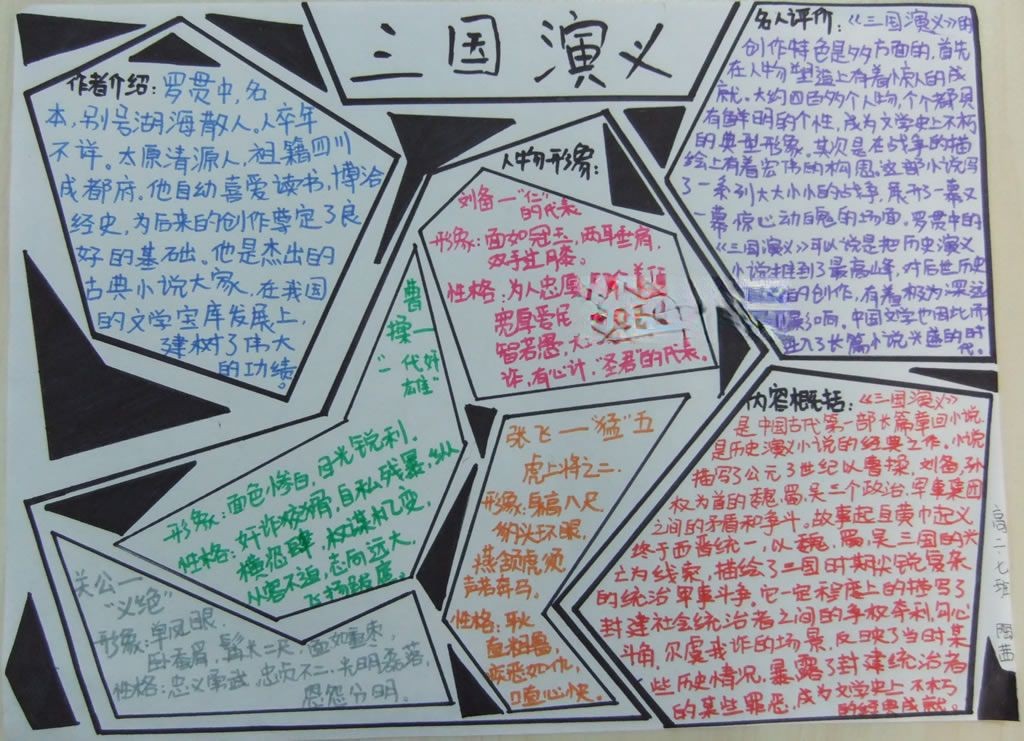 三国演义
作者介绍:罗贯中,名
本,别号湖海散人。人卒年
不详。太原清源人,祖籍四川
成都府。他自幼喜爱读书,博洽
经史,为后来的创作奠定了良
好的基础。他是杰出的
古典小说大家,在我国
的文学宝库发展上,
建树了伟大
的功绩。
人物形象:
刘备一“仁”
的代表
形象:面如冠玉,两耳垂肩,
双手过膝。
性格:为人忠愿
宽厚爱民
智若愚,大
诈,有心计,“圣君”的代表。
曹操一
“一代奸
雄”
形象:面色惨白,目光锐利。
性格:奸诈狡猾,自私残暴,纵
横恣肆,权谋机变,
从容不迫,志向远大,
飞扬跋扈。
关公一
“义绝”
形象:单凤眼,
卧蚕眉,髯长二尺,面如重枣,
性格:忠义勇武,忠贞不二,光明磊落,
恩怨分明。
张飞一“猛”五
虎上将之二.
形象:身高八尺
豹头环眼,
燕颔虎须
声若奔马。
性格:耿
直粗鲁,
疾恶如仇,
口直心快。
名人评价:《三国演义》的
创作特色是多方面的,首先
在人物塑造上有着惊人的成
就。大约四百多个人物,个个都具
有鲜明的个性,成为文学史上不朽
的典型形象。其次是在战争的描
绘上有着宏伟的构思。这部小说写
了一系列大大小小的战争,展开了一幕又
一幕惊心动魄的场面。罗贯中的
《三国演义》可以说是把历史演义
小说推到了最高峰,对后世历史
的创作,有着极为深远
影响。中国文学也因此而
进入了长篇小说兴盛的时
代。
内容概括:《三国演义》
是中国古代第一部长篇章回小说,
是历史演义小说的经典之作。小说
描写了公元3世纪以曹操,刘备,孙
权为首的魏、蜀、吴三个政治、军事集团
之间的矛盾和争斗。故事起自黄巾起义
终于西晋统一,以魏,蜀,吴三国的兴
亡为线索,描绘了三国时期尖锐复杂
的统治军事斗争。它一定程度上的描写了
封建社会统治者之间的争权夺利,勾心
斗角,尔虞我诈的场景,反映了当时某
些历史情况,暴露了封建统治者
的某些罪恶,成为文学史上不朽
的经典成就。
高二七班
陶茜